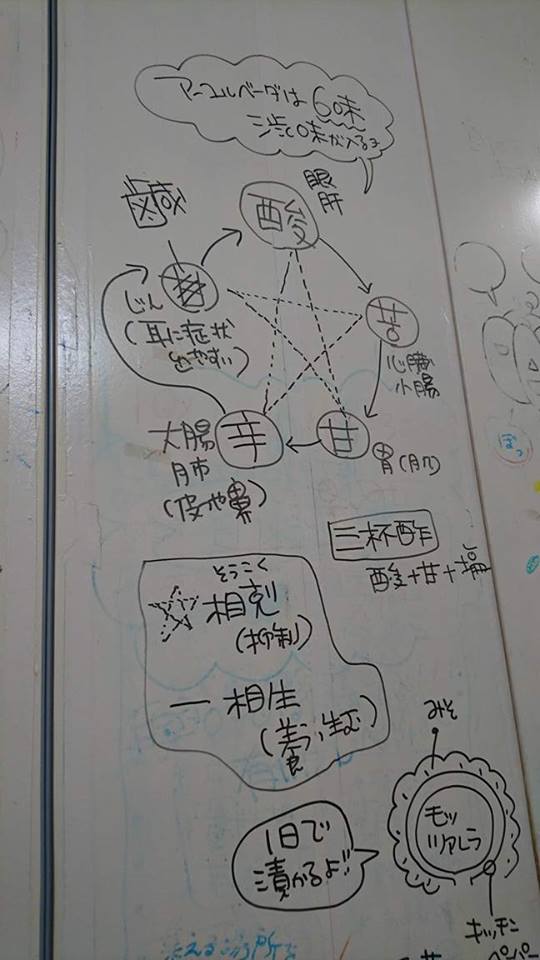 アーユルベーダは6味
渋味が入るよ
眼
肝
酸
鹹
じん
(耳に症状
でやすい)
苦
心臓
小腸
辛
大腸
肺
(皮や鼻)
甘
胃(脾)
三杯酢
酸+甘+塩
そうこく
相剋
(抑制)
相生
(養い、生む)
みそ
モッツァレラ
1日で
漬かるよ!!
キッチン
ペーパー
ぽっ